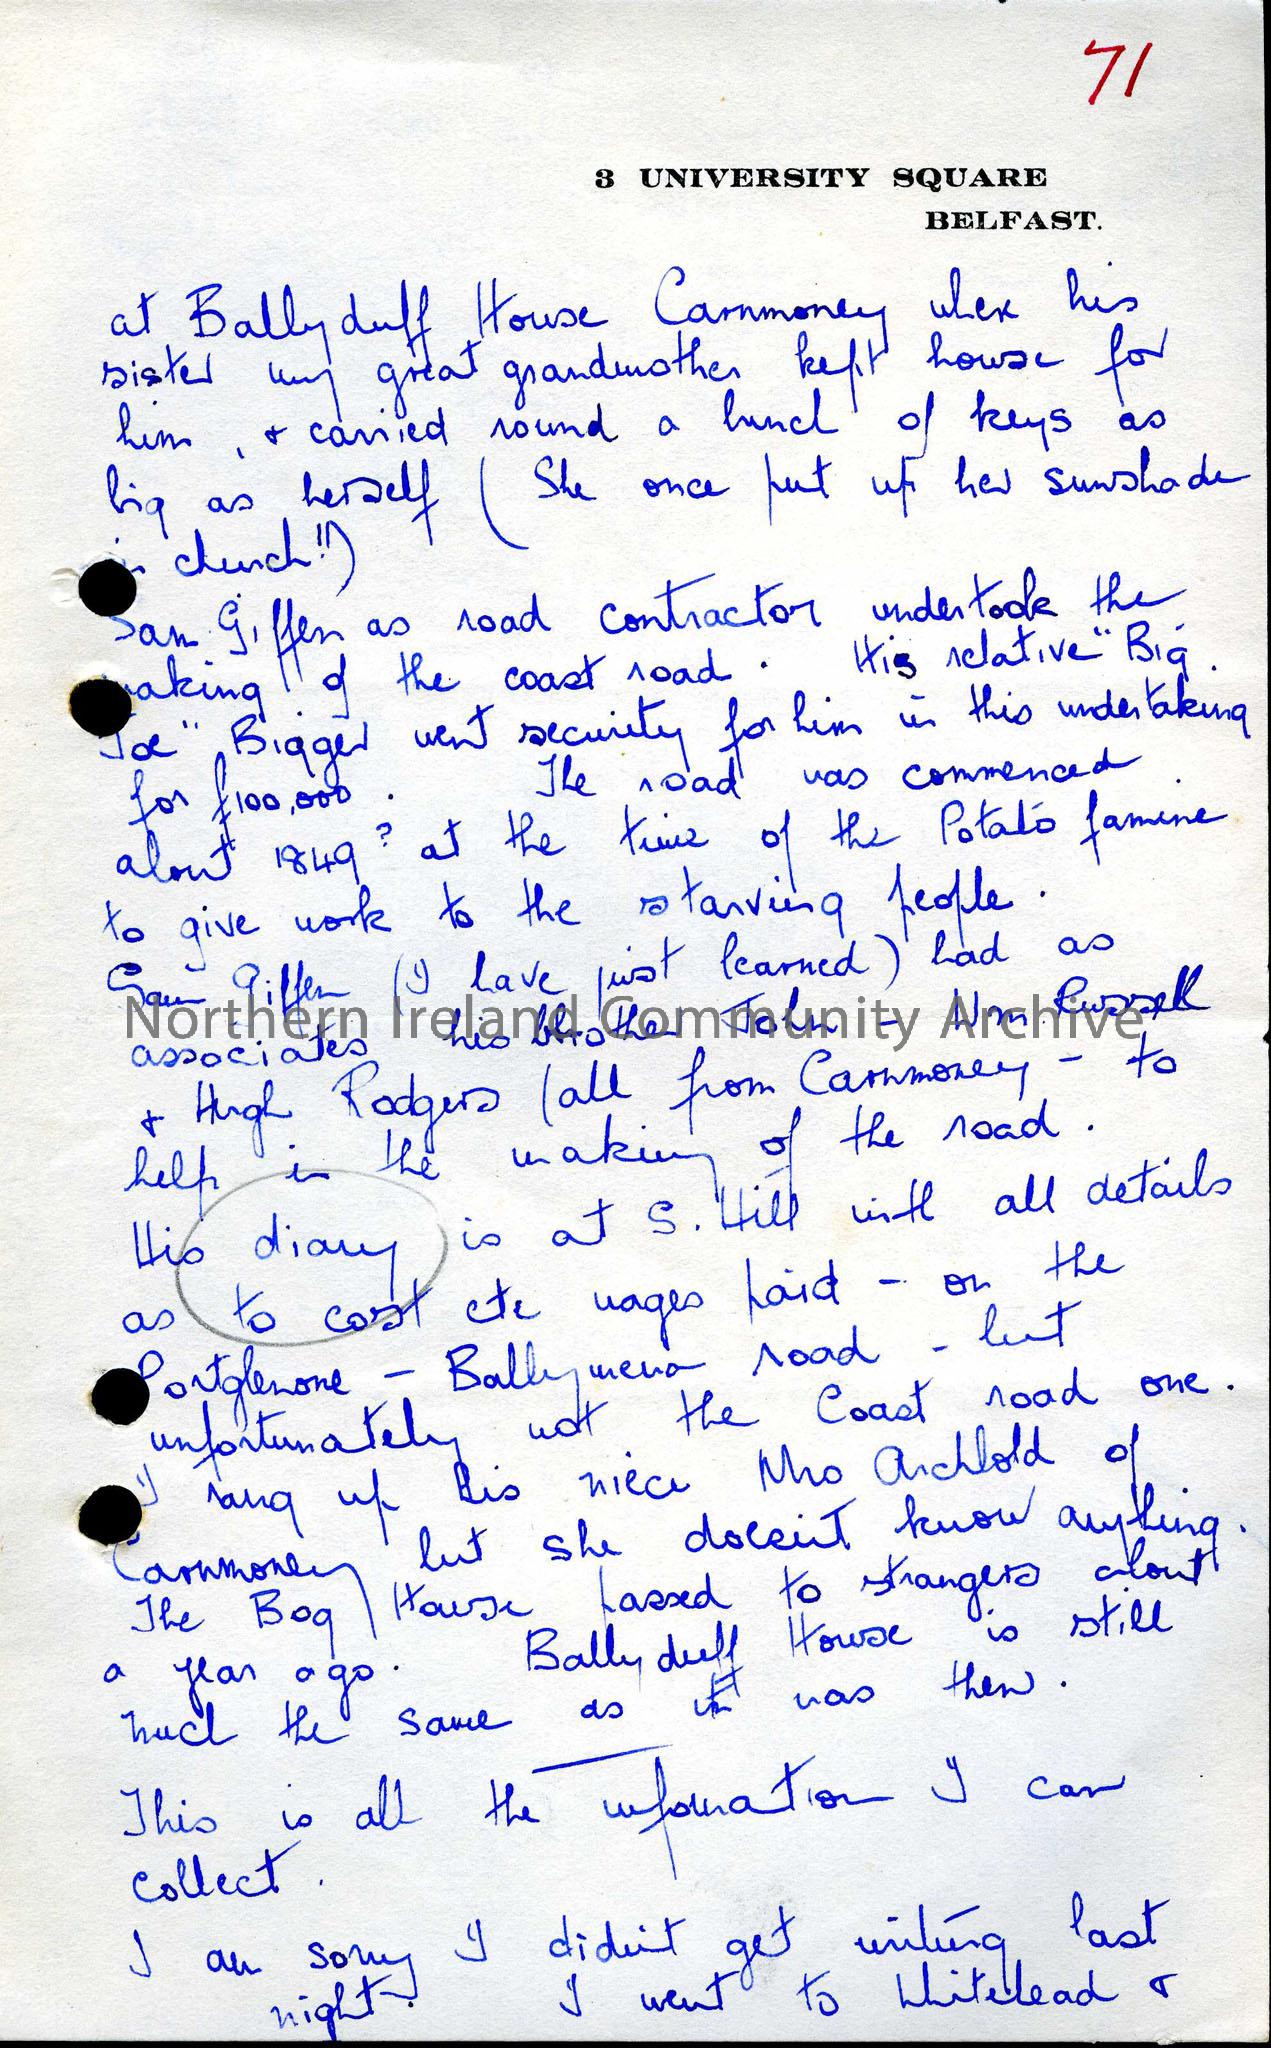 71
3 UNIVERSITY SQUARE
BELFAST.
at Ballyduff House Carnmoney where his
sister my great grandmother kept house for
him, & carried round a bunch of keys as
big as herself (She once put up her sunshade
in church!!)
Sam Giffen as road contractor undertook the
making of the coast road. His relative "Big
Joe" Bigger went security for him in this undertaking
for £100,000. The road was commenced
about 1849? at the time of the Potato famine
to give work to the starving people.
Sam Giffen (I have just learned) had as
associates his brother John - Wm Russell
& Hugh Rodgers (all from Carnmoney - to
help in the making of the road.
His diary is at S. Hill with all details
as to cost etc wages paid - on the
Portglenone - Ballymena road - but
unfortunately not the Coast road one.
I rang up his niece Mrs Archbold of
Carnmoney but she doesn't know anything.
The Bog House passed to strangers about
a year ago. Ballyduff House is still
much the same as it was then.
This is all the information I can
collect.
I am sorry I didn't get writing last
night. I went to Whitehead &
Northern Ireland Community Archive